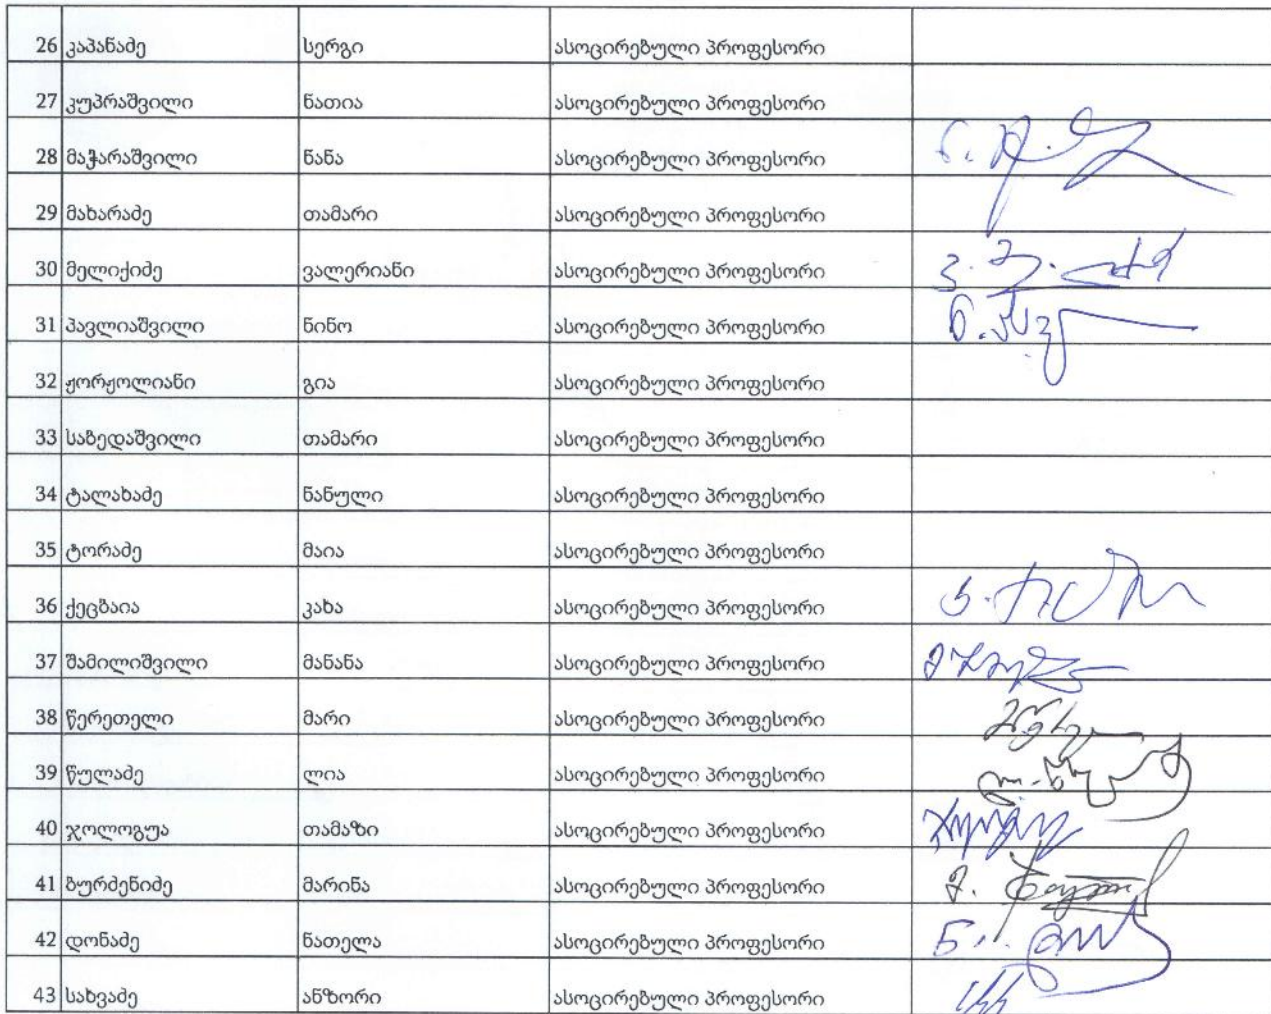 26 კაპანაძე სერგი ასოცირებული პროფესორი
27 კუპრაშვილი ნათია ასოცირებული პროფესორი
28 მაჭარაშვილი ნანა ასოცირებული პროფესორი
29 მახარაძე თამარი ასოცირებული პროფესორი
30 მელიქიძე ვალერიანი ასოცირებული პროფესორი
31 პავლიაშვილი ნინო ასოცირებული პროფესორი
32 ჟორჟოლიანი გია ასოცირებული პროფესორი
33 საბედაშვილი თამარი ასოცირებული პროფესორი
34 ტალახაძე ნანული ასოცირებული პროფესორი
35 ტორაძე მაია ასოცირებული პროფესორი
36 ქეცბაია კახა ასოცირებული პროფესორი
37 შამილიშვილი მანანა ასოცირებული პროფესორი
38 წერეთელი მარი ასოცირებული პროფესორი
39 წულაძე ლია ასოცირებული პროფესორი
40 ჯოლოგუა თამაზი ასოცირებული პროფესორი
41 ბურძენიძე მარინა ასოცირებული პროფესორი
42 დონაძე ნათელა ასოცირებული პროფესორი
43 სახვაძე ანზორი ასოცირებული პროფესორი